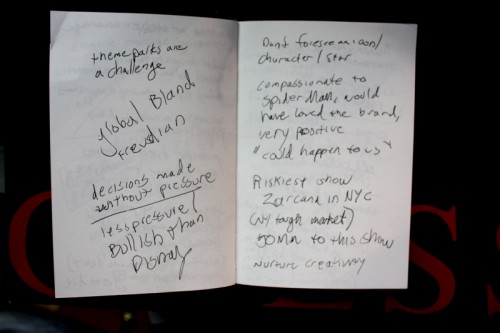 theme parks are
a challenge
global Bland
freudian
decisions made
without pressure
less pressure /
Bullish than
Disney
Don't foresee an icon /
character / star
compassionate to
spider Man, would
have loved the brand,
very positive
"could happen to us"
Riskiest show
Zarcana in NYC
(NY tough market)
50MN to this show
nurture creativity